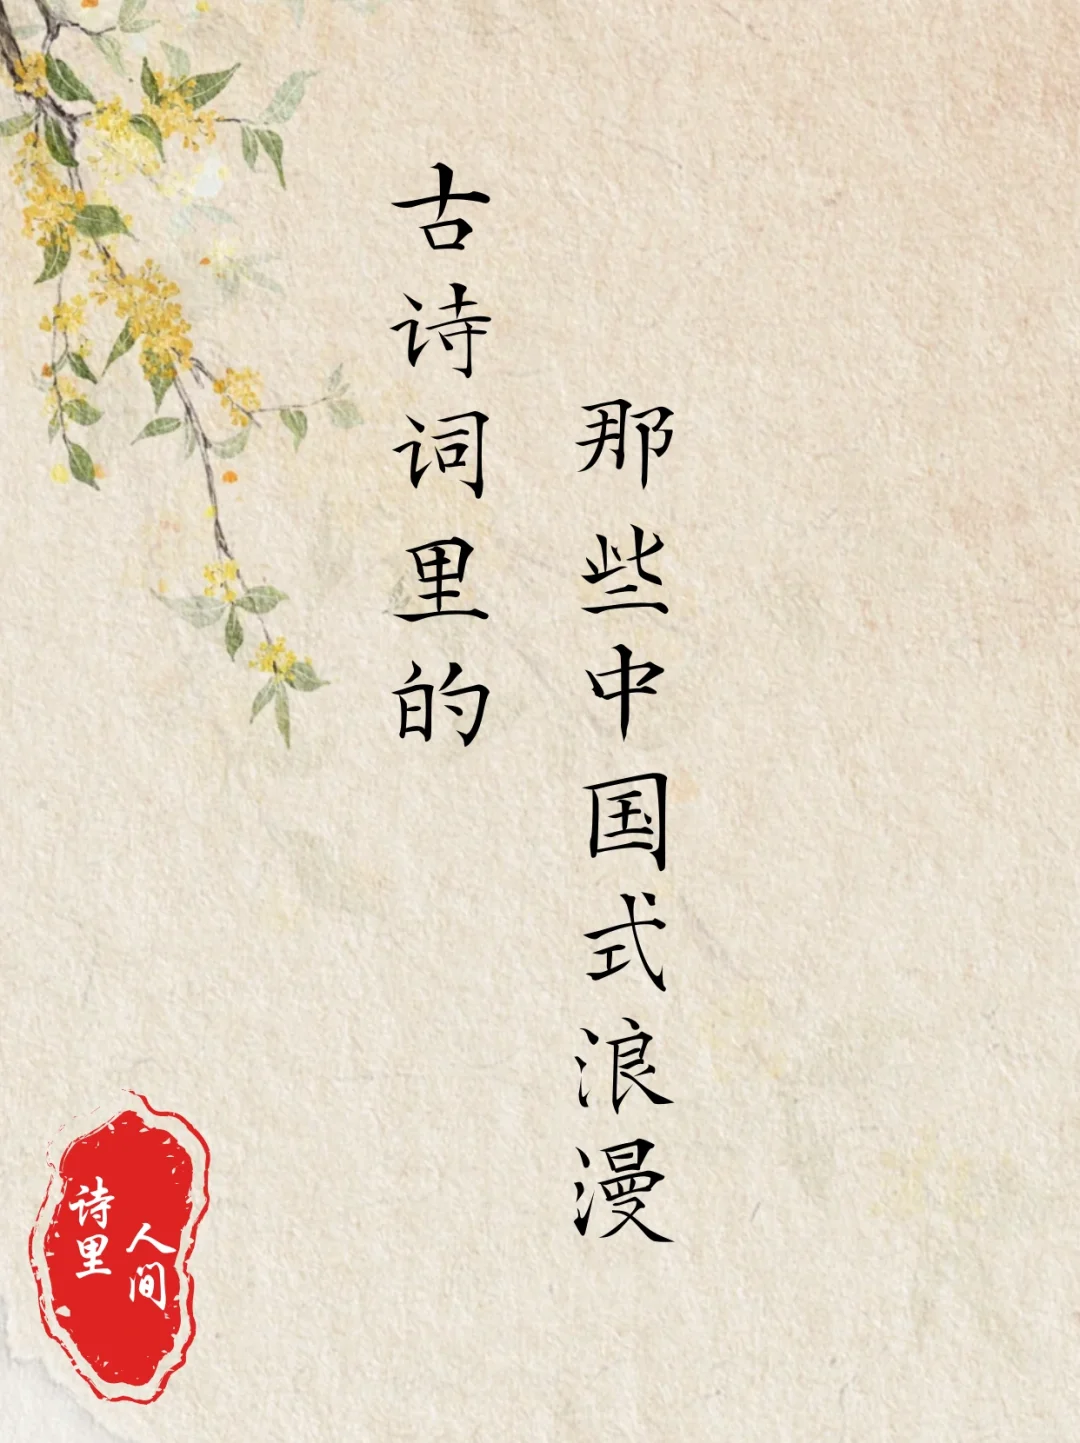 古诗词里的
那些中国式浪漫
诗里
人间